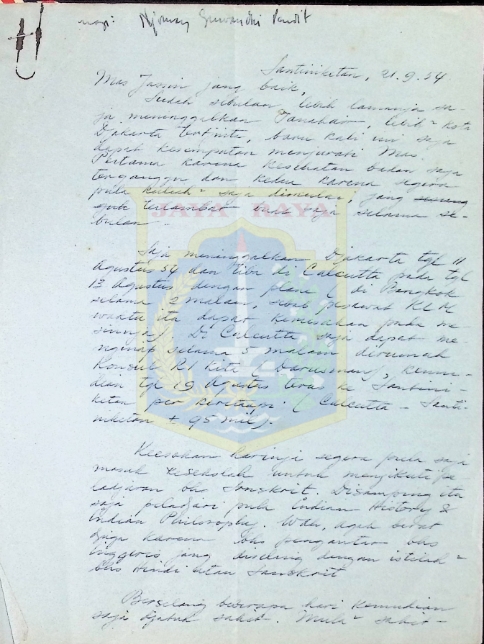 Njoman Suwandhi Pendit
Santiniketan, 21.9.54
Mas Jassin jang baik,
Sudah sebulan lebih lamanja sa-
ja meninggalkan Tanahair, lebih² kota
Djakarta tertjinta, baru kali ini saja
dapat kesempatan menjurati Mas.
Pertama karena kesehatan badan saja
terganggu dan kedua karena segera
pula kuliah² saja dimulai, jang
saja selama se-
bulan.
JAYA RAYA
Saja meninggalkan Djakarta tgl 11
Agustus 54 dan tiba di Calcutta pada tgl
13 Agustus dengan plane (di Bangkok
selama 2 malam, sebab pesawat KLM
waktu itu dapat kerusakan pada me-
sinnja). Di Calcutta saja dapat me-
nginap selama 5 malam dirumah
Konsul RI kita (Darusman), kemu-
dian tgl 19 Agustus ke Santini-
ketan per (Calcutta - Santi-
niketan ± 95 mil).
Keesokan harinja segera pula saja
masuk kesekolah untuk mengikuti pe-
ladjaran bh. Sanskrit. Disamping itu
saja peladjari pula Indian History &
Indian Philosophy. Wah, agak berat
djuga karena bhs pengantar bhs
Inggeris jang diselang dengan istilah²
bhs Hindi atau Sanskrit.
Berselang beberapa hari kemudian
saja djatuh sakit. Mula² saki-